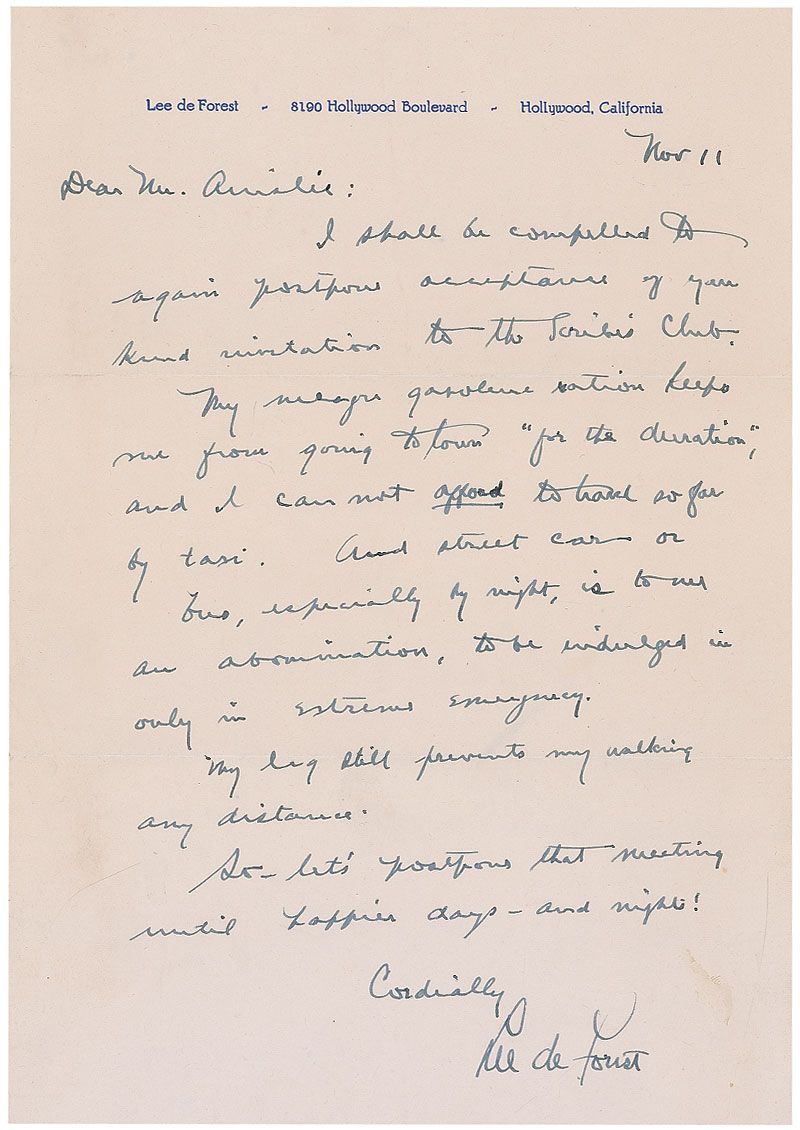 Lee de Forest - 8190 Hollywood Boulevard - Hollywood, California
Nov 11
Dear Mr. Ainslie:
I shall be compelled to
again postpone acceptance of your
kind invitation to the Scribes Club.
My meagre gasolene ration keeps
me from going to town "for the duration",
and I can not afford to travel so far
by taxi. And street car or
bus, especially by night, is to me
an abomination, to be indulged in
only in extreme emergency.
My leg still prevents my walking
any distance.
So - let's postpone that meeting
until happier days - and nights!
Cordially
Lee de Forest